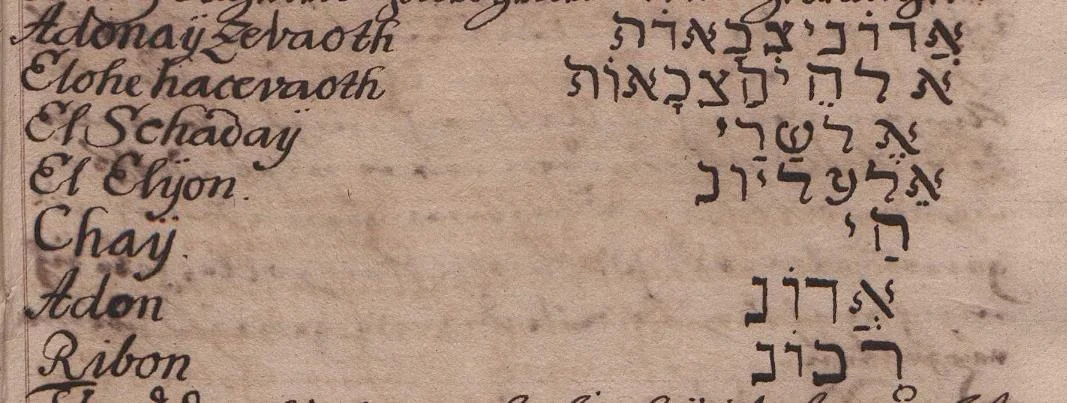 Adonaÿ Zevaoth אֲדוֹני צבָאות
Elohe hacevaoth אלהֵי הַצבָאוֹת
El Schadaÿ אֵל שַׁדַי
El Elÿon. אֵל עליוֹנ
Chaÿ. הַי
Adon אֲדוֹנ
Ribon רבוֹנ